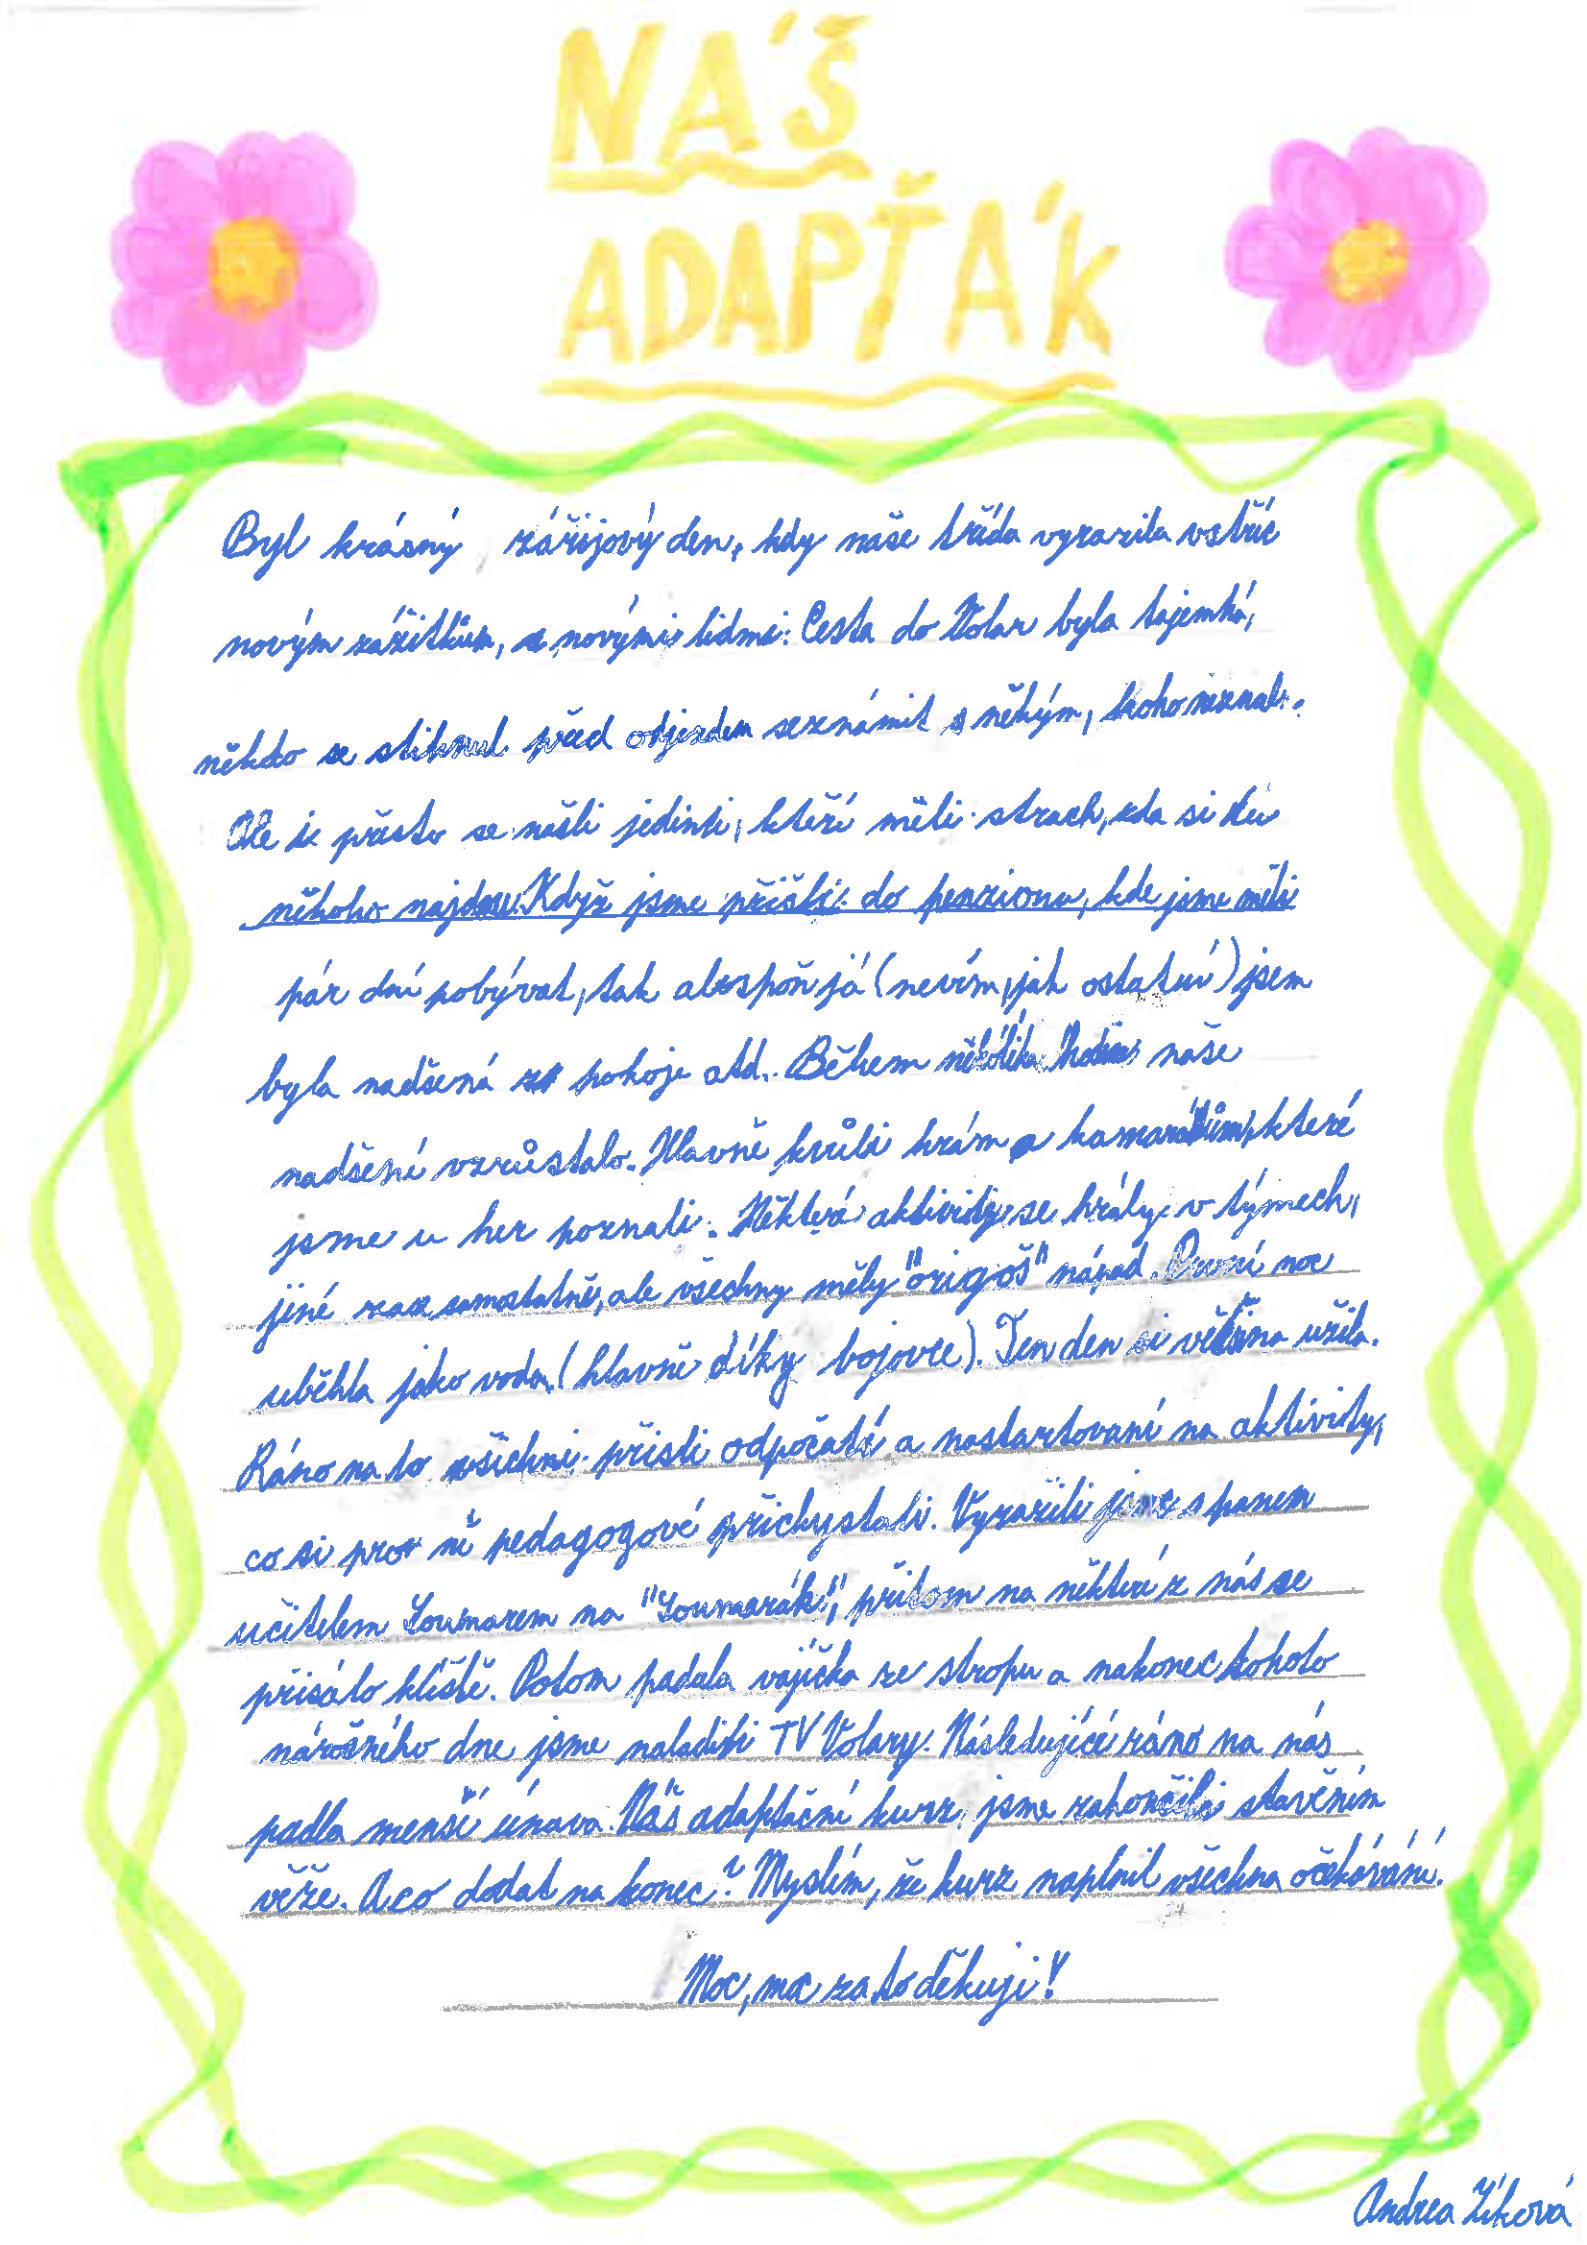 NÁŠ
ADAPŤÁK
Byl krásný zářijový den, kdy naše třída vyrazila vstříc
novým zážitkům, s novými lidmi. Cesta do Volar byla tajemká,
někdo se stihnul před odjezdem seznámit s někým, koho neznal.
Ale i přesto se našli jedinti, kteří měli strach, zda si tu
někoho najdou. Když jsme přišli do penzionu, kde jsme měli
pár dní pobývat, tak alespoň já (nevím, jak ostatní) jsem
byla nadšená z pokoje atd. Během několika hodin naše
nadšení vzrůstalo. Hlavně kvůli hrám a kamarádům, které
jsme u her poznali. Některá aktivity se hrály v týmech,
jiné zase samostatně, ale všechny měly "origoš" nápad. První noc
uběhla jako voda (hlavně díky bojovce). Ten den si většina užila.
Ráno na to všichni přišli odpočatí a nastartovaní na aktivity,
co si pro ně pedagogové přichystali. Vyrazili jsme s panem
učitelem Soumarem na "Soumarák", přitom na některé z nás se
přisálo klíště. Potom padala vajíčka ze stropu a nakonec tohoto
náročného dne jsme naladili TV Volary. Následující ráno na nás
padla menší únava. Náš adaptační kurz jsme zakončili stavěním
věže. A co dodat na konec? Myslím, že kurz naplnil všechna očekávání.
Moc, moc za to děkuji!
Andrea Zíková